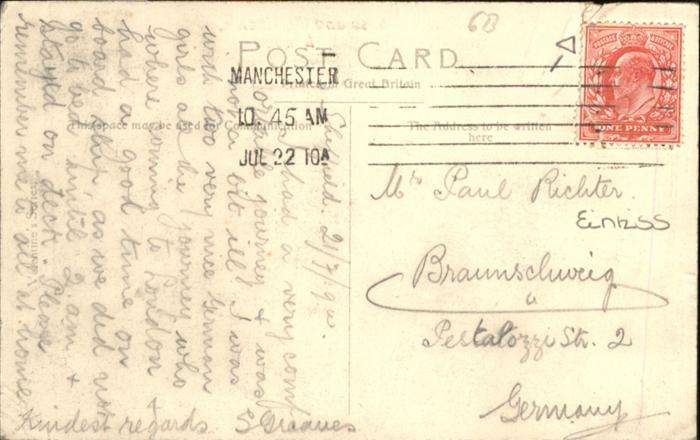 6B
POST CARD
MANCHESTER
Great Britain
10. 45 AM
JUL 22 10A
This space may be used for Communication
The Address to be written
here
ONE PENNY
Mr Paul Richter
Einkss
Braunschweig
Pestalozzi Str. 2
Germany
Sheffield. 21/7/1910.
I had a very comf
journey & was
not a bit ill! I was
with two very nice German
girls all the journey who
where coming to London
had a good time on
board ship as we did not
go to bed until 2 am &
stayed on deck. Please
remember me to all at home
Kindest regards S Greaves